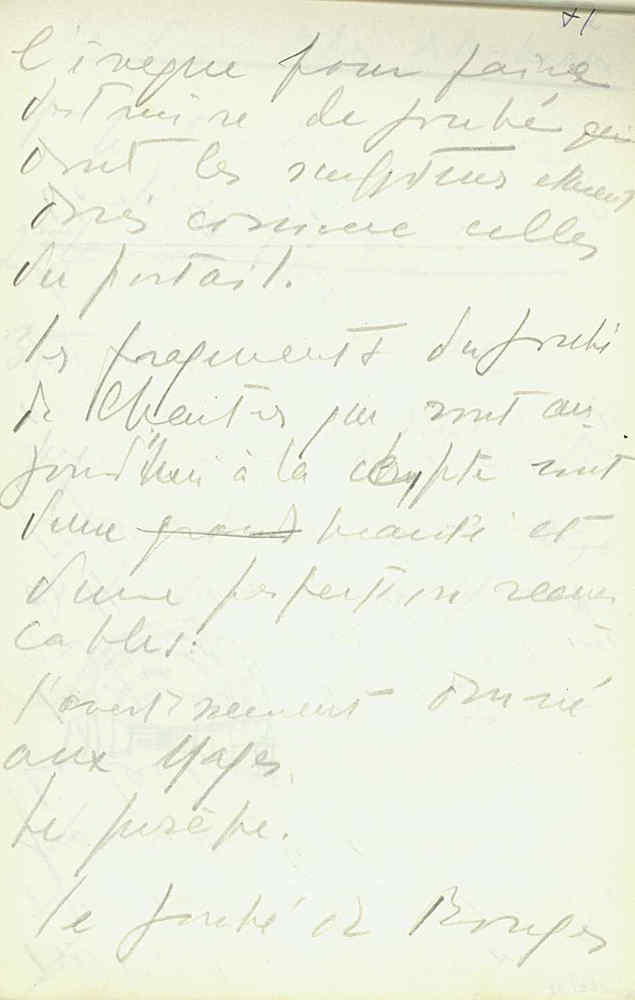 81
l'évêque pour faire
detruire le jubé qui
dont les sculptures etaient
dorés comme celles
du portail.
les fragments du jubé
de Chartres qui sont au
jourd'hui à la crypte sont
d'une grand beauté et
d'une perfection remar
cables.
l'avertissement donné
aux Mages
le jubé de Bourges